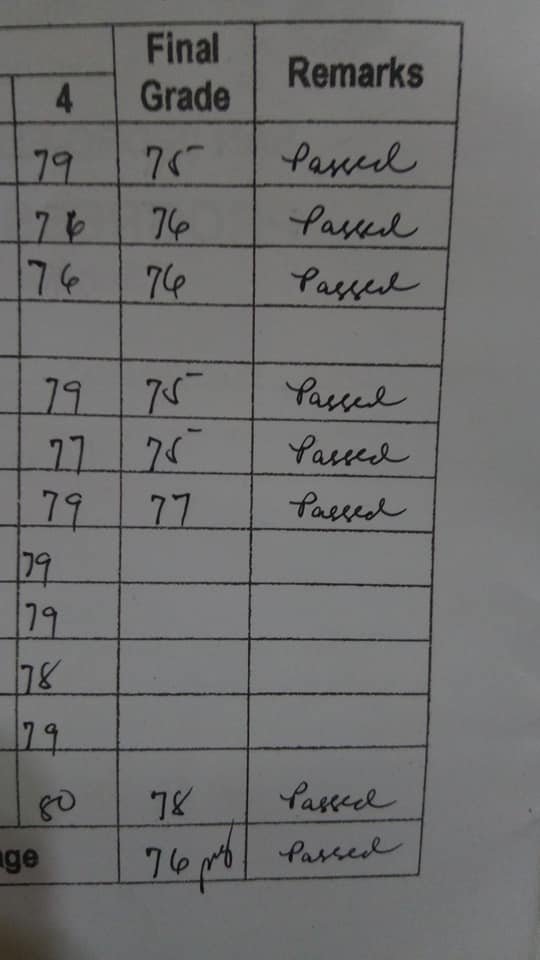 Final Grade Remarks
4
79 75 Passed
76 76 Passed
76 76 Passed
79 75 Passed
77 75 Passed
79 77 Passed
79
79
78
79
80 78 Passed
age 76 Passed